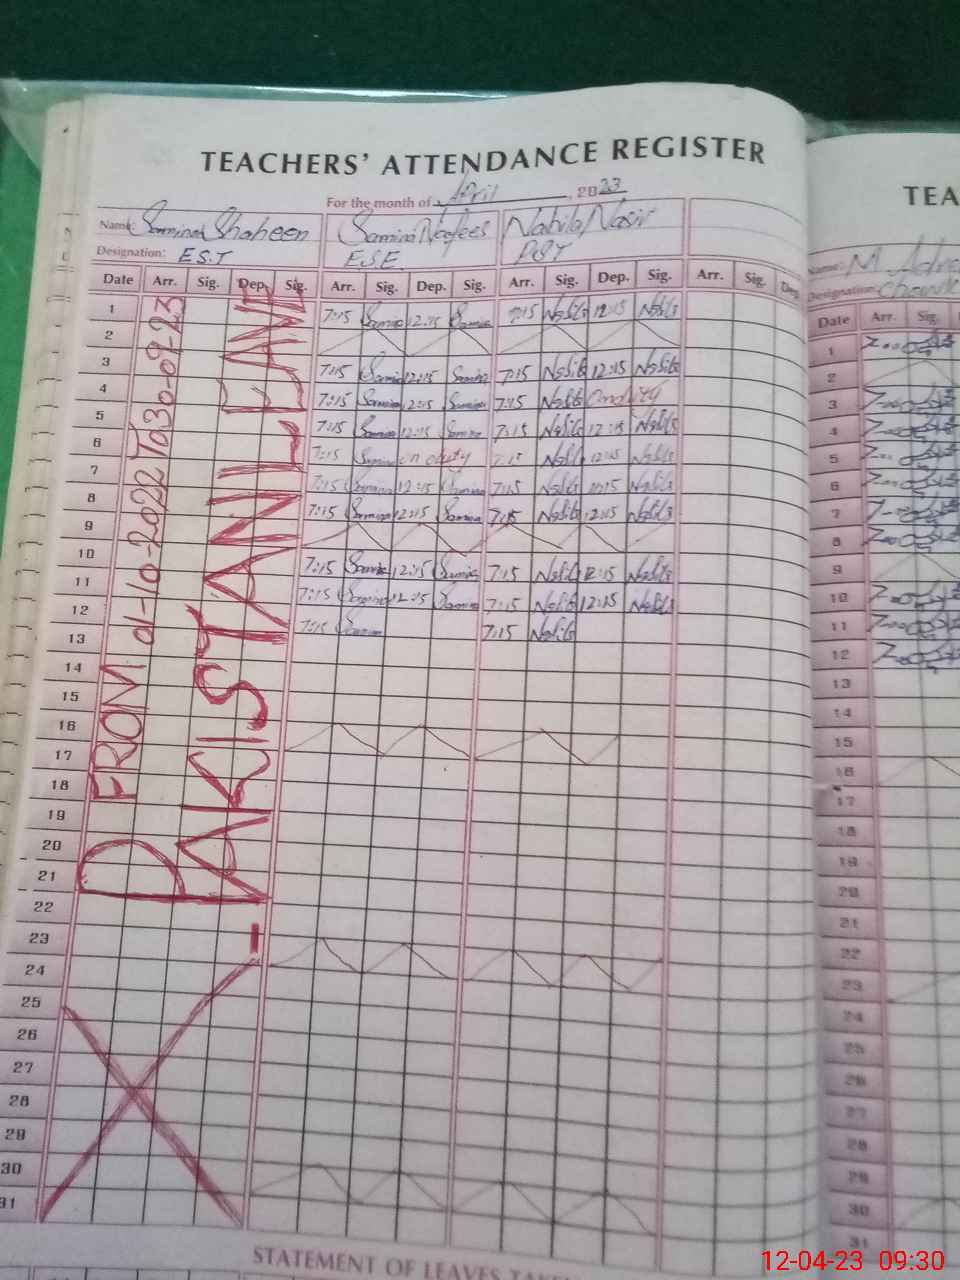 TEACHERS' ATTENDANCE REGISTER
For the month of April, 2023
Name: Samina Shaheen Samina Nafees Nabila Nasir
Designation: E.S.T E.S.E. PST
Date Arr. Sig. Dep. Sig. Arr. Sig. Dep. Sig. Arr. Sig. Dep. Sig. Arr. Sig. Dep.
FROM 01-10-2022 To 30-09-23
PAKISTANI LEAVE
1 7:15 Samina 12:15 Samina 7:15 Nabila 12:15 Nabila
2
3 7:15 Samina 12:15 Samina 7:15 Nabila 12:15 Nabila
4 7:15 Samina 12:15 Samina 7:15 Nabila On duty
5 7:15 Samina 12:15 Samina 7:15 Nabila 12:15 Nabila
6 7:15 Samina on duty 7:15 Nabila 12:15 Nabila
7 7:15 Samina 12:15 Samina 7:15 Nabila Nabila
8 7:15 Samina 12:15 Samina 7:15 Nabila 12:15 Nabila
9
10 7:15 Samina 12:15 Samina 7:15 Nabila 12:15 Nabila
11 7:15 Samina 12:15 Samina 7:15 Nabila 12:15 Nabila
12 7:15 Samina 7:15 Nabila
13
14
15
16
17
18
19
20
21
22
23
24
25
26
27
28
29
30
31
STATEMENT OF LEAVES
TEA
Name: M
Designation:
Date Arr. Sig.
1
2
3
4
5
6
7
8
9
10
11
12
13
14
15
16
17
18
19
20
21
22
23
24
25
26
27
28
29
30
31
12-04-23 09:30